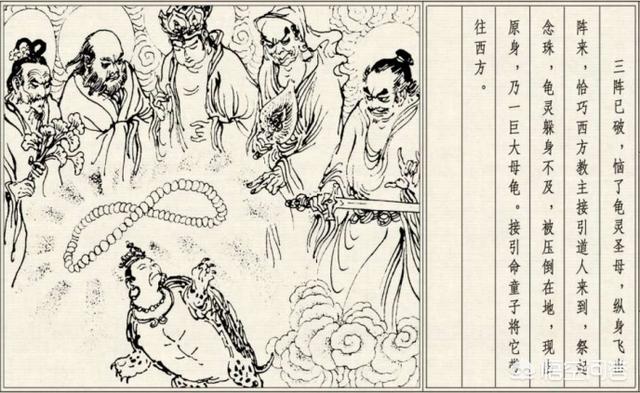 三阵已破，恼了龟灵圣母，纵身飞出
阵来，恰巧西方教主接引道人来到，祭起
念珠，龟灵躲身不及，被压倒在地，现出
原身，乃一巨大母龟。接引命童子将它
往西方。
悟空问答